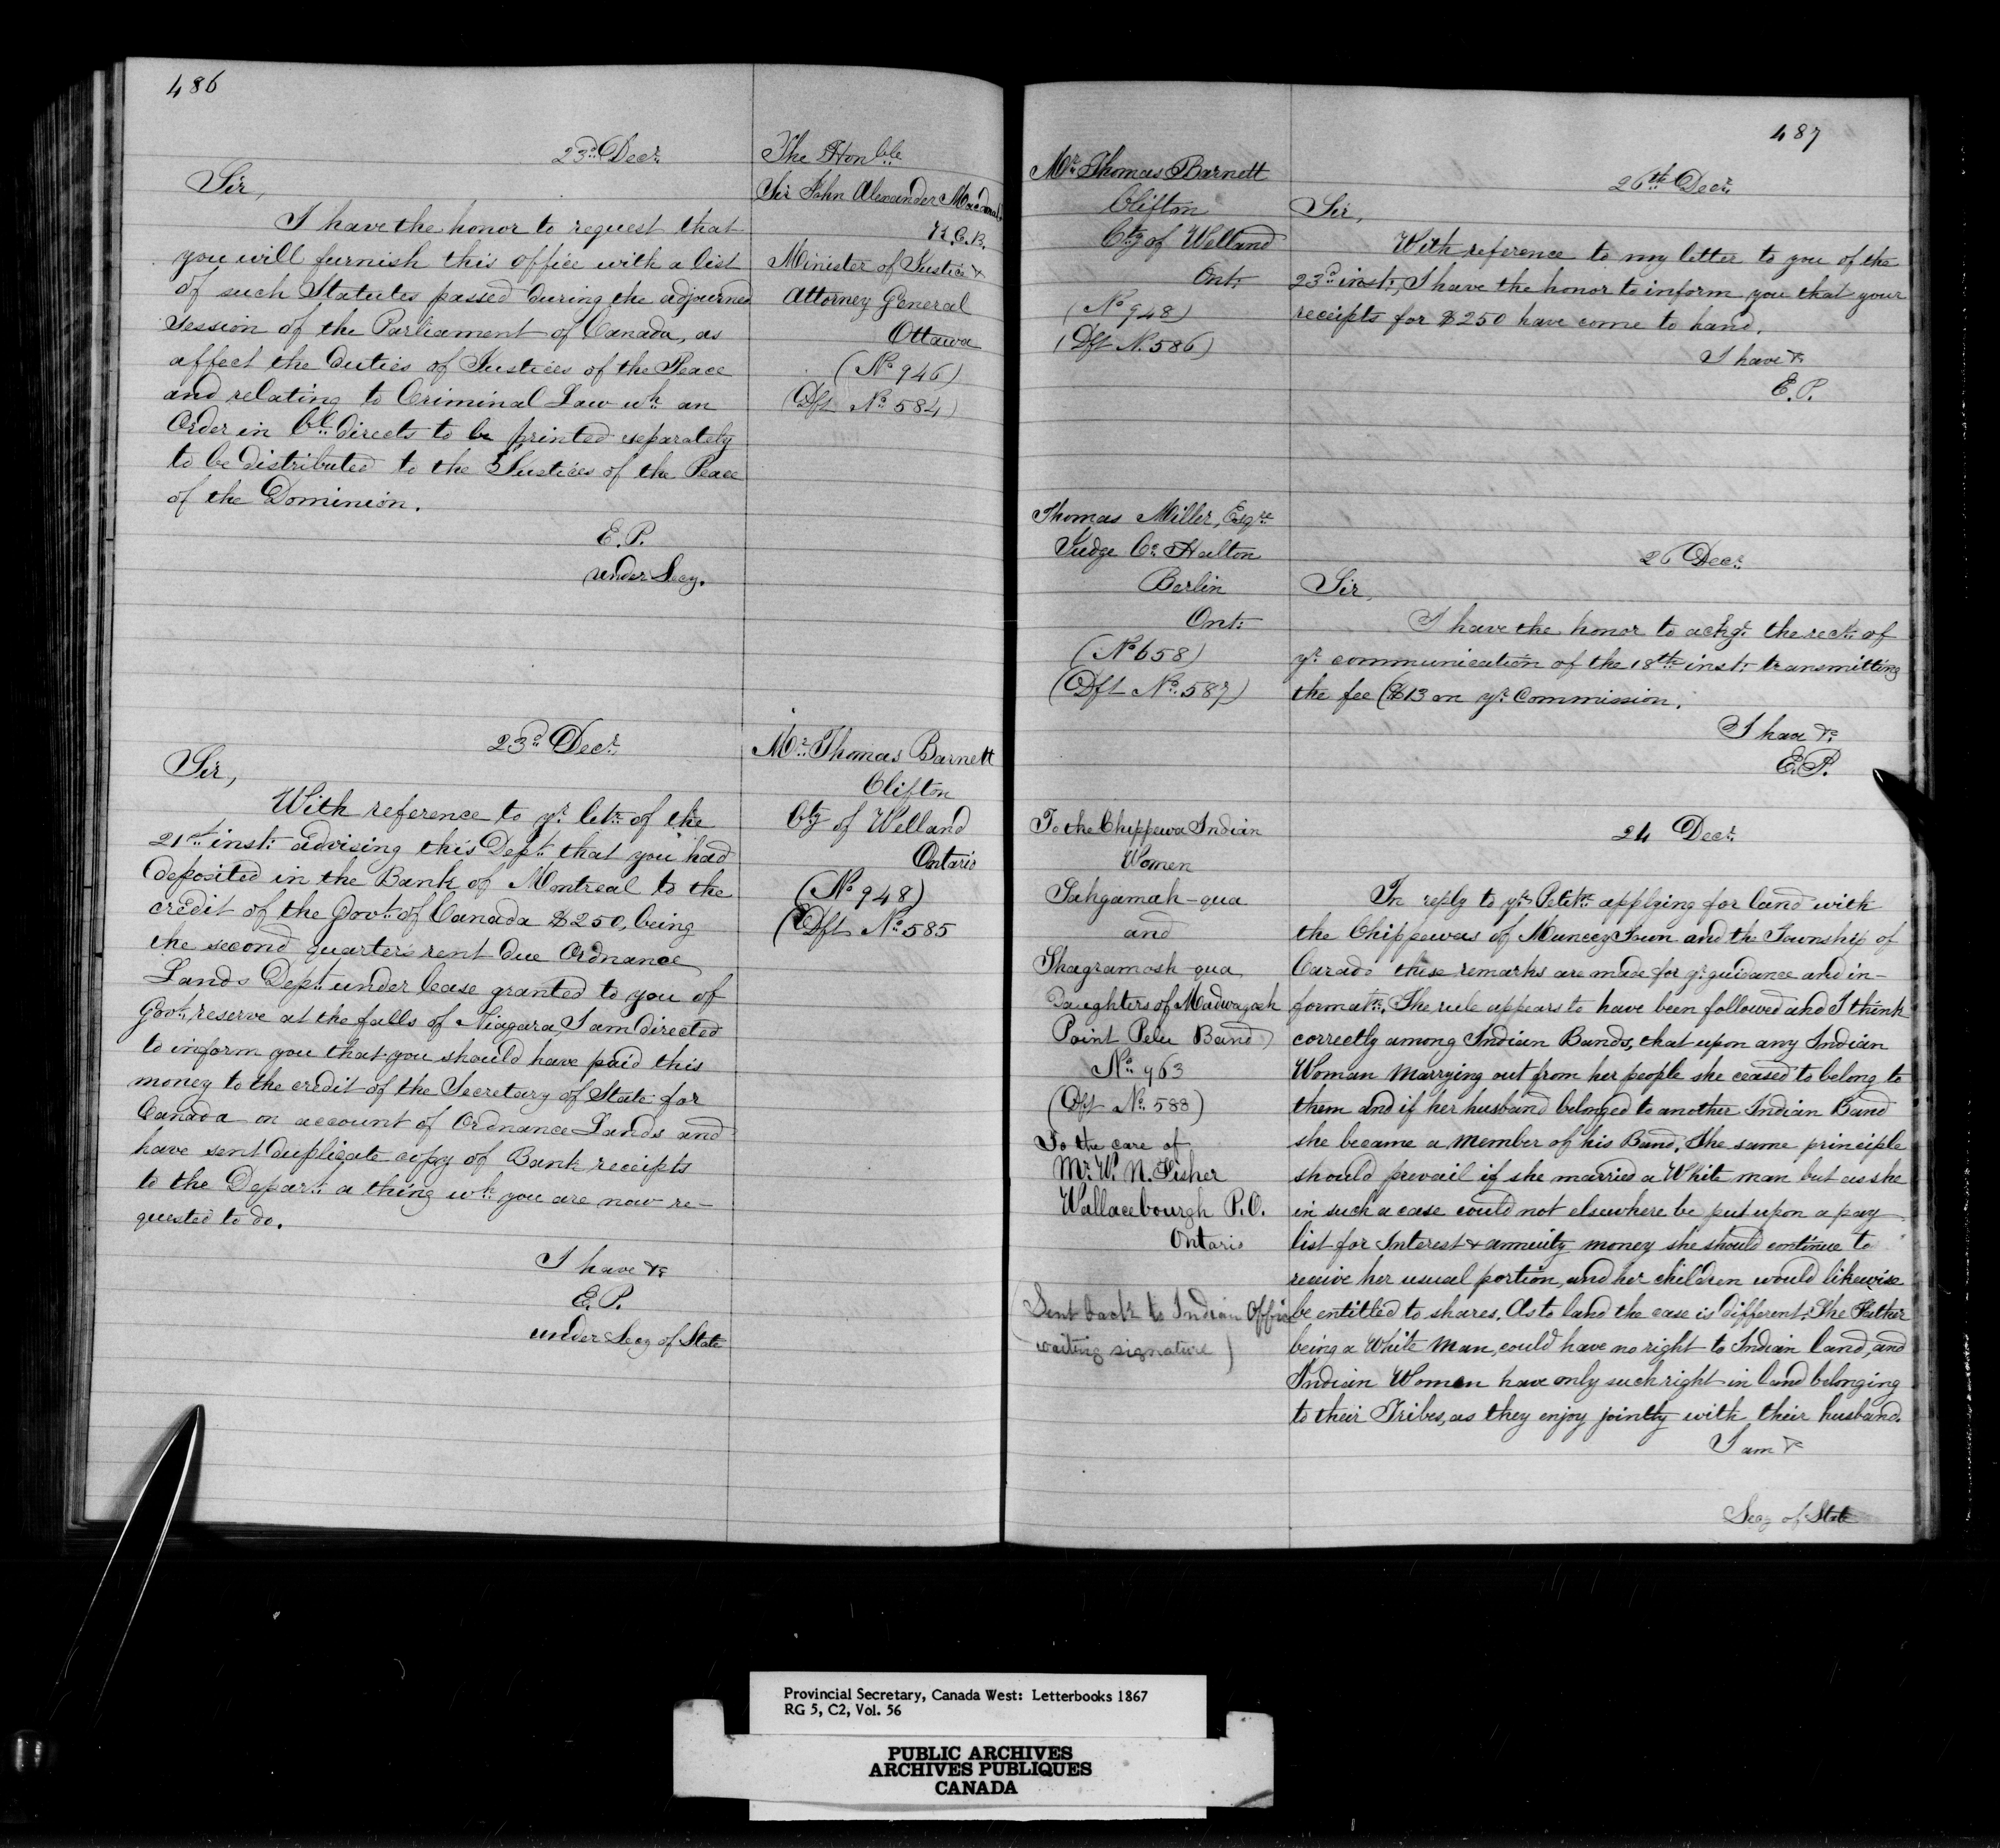 486
23d Decr
The Honble
Sir John Alexander Macdonald
K.C.B.
Minister of Justice &
Attorney General
Ottawa
(No 946)
(Dft No 584)
Sir,
I have the honor to request that
you will furnish this office with a list
of such Statutes passed during the adjourned
Session of the Parliament of Canada, as
affect the duties of Justices of the Peace
and relating to Criminal Law wh an
Order in Cl directs to be printed separately
to be distributed to the Justices of the Peace
of the Dominion.
E.P.
under Secy.
23d Decr
Mr Thomas Barnett
Clifton
Cty of Welland
Ontario
(No 948)
(Dft No 585
Sir,
With reference to yr letr of the
21st inst: advising this Dept that you had
deposited in the Bank of Montreal to the
credit of the Govt of Canada $250, being
the second quarters rent due Ordnance
Lands Dept under lease granted to you of
Govt reserve at the falls of Niagara, I am directed
to inform you that you should have paid this
money to the credit of the Secretary of State for
Canada on account of Ordnance Lands and
have sent duplicate copy of Bank receipts
to the Depart a thing wh you are now re-
quested to do.
I have &c
E.P.
under Secy of State
487
Mr Thomas Barnett
Clifton
Cty of Welland
Ont:
(No 948)
(Dft No 586)
26th Decr
Sir,
With reference to my letter to you of the
23d inst:, I have the honor to inform you that your
receipts for $250 have come to hand.
I have &c
E.P.
Thomas Miller, Esqre
Judge Co Halton
Berlin
Ont:
(No 658)
(Dft No 587)
26 Decr
Sir,
I have the honor to ackge the rect of
yr communication of the 18th inst: transmitting
the fee ($13 on yr Commission.
I have &c
E.P.
To the Chippewa Indian
Women
Sahgamah-qua
and
Shagramosh-qua
Daughters of Madwayosh
Point Pelee Band)
No 963
(Dft No 588)
To the care of
Mr W. N. Fisher
Wallacebourgh P.O.
Ontario
(Sent back to Indian Office
waiting signature)
24 Decr
In reply to yr Petitn applying for land with
the Chippewas of Muncey Town and the Township of
Carado these remarks are made for yr guidance and in-
formatn. The rule appears to have been followed and I think
correctly among Indian Bands, that upon any Indian
Woman marrying out from her people she ceased to belong to
them and if her husband belonged to another Indian Band
she became a member of his Band. The same principle
should prevail if she married a White man but as she
in such a case could not elsewhere be put upon a pay
list for Interest & annuity money she should continue to
receive her usual portion, and her children would likewise
be entitled to shares. As to land the case is different. The Father
being a White Man, could have no right to Indian land, and
Indian Women have only such right in land belonging
to their Tribes, as they enjoy jointly with their husband.
I am &c
Secy of State
Provincial Secretary, Canada West: Letterbooks 1867
RG 5, C2, Vol. 56
PUBLIC ARCHIVES
ARCHIVES PUBLIQUES
CANADA